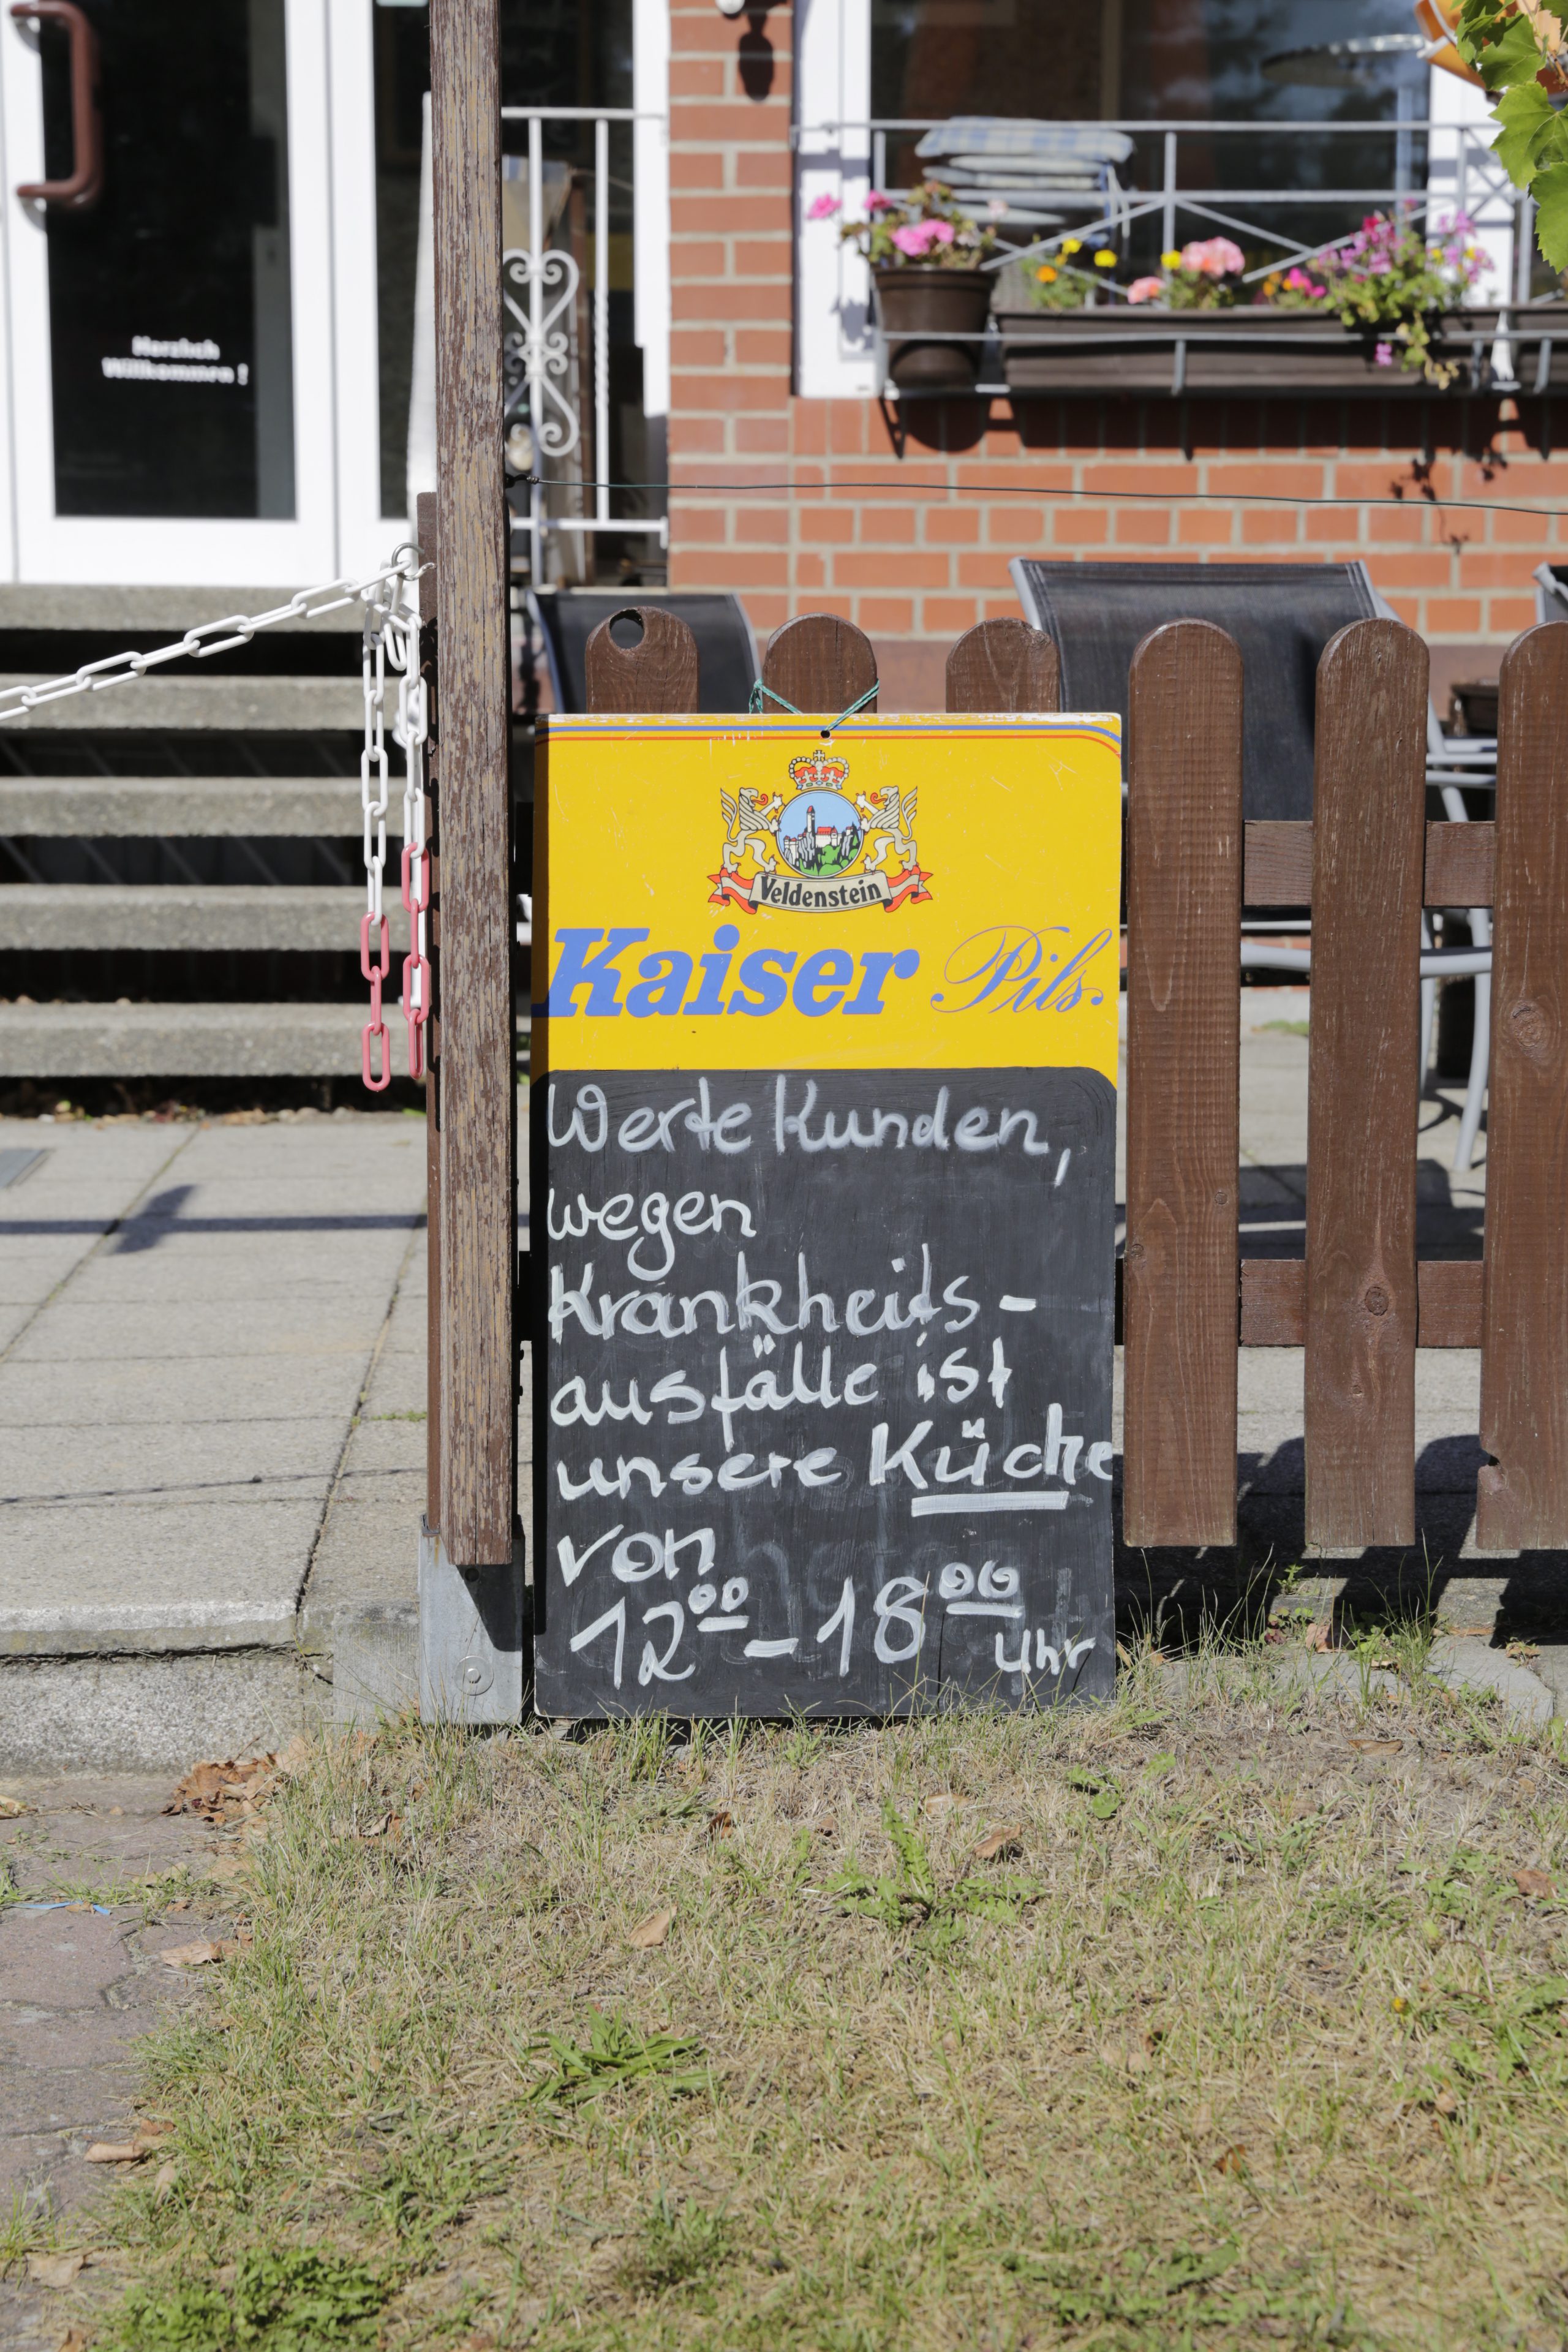 Herzlich
Willkommen !
Veldenstein
Kaiser Pils.
Werte Kunden,
wegen
Krankheits-
ausfälle ist
unsere Küche
von
12⁰⁰ - 18⁰⁰
Uhr